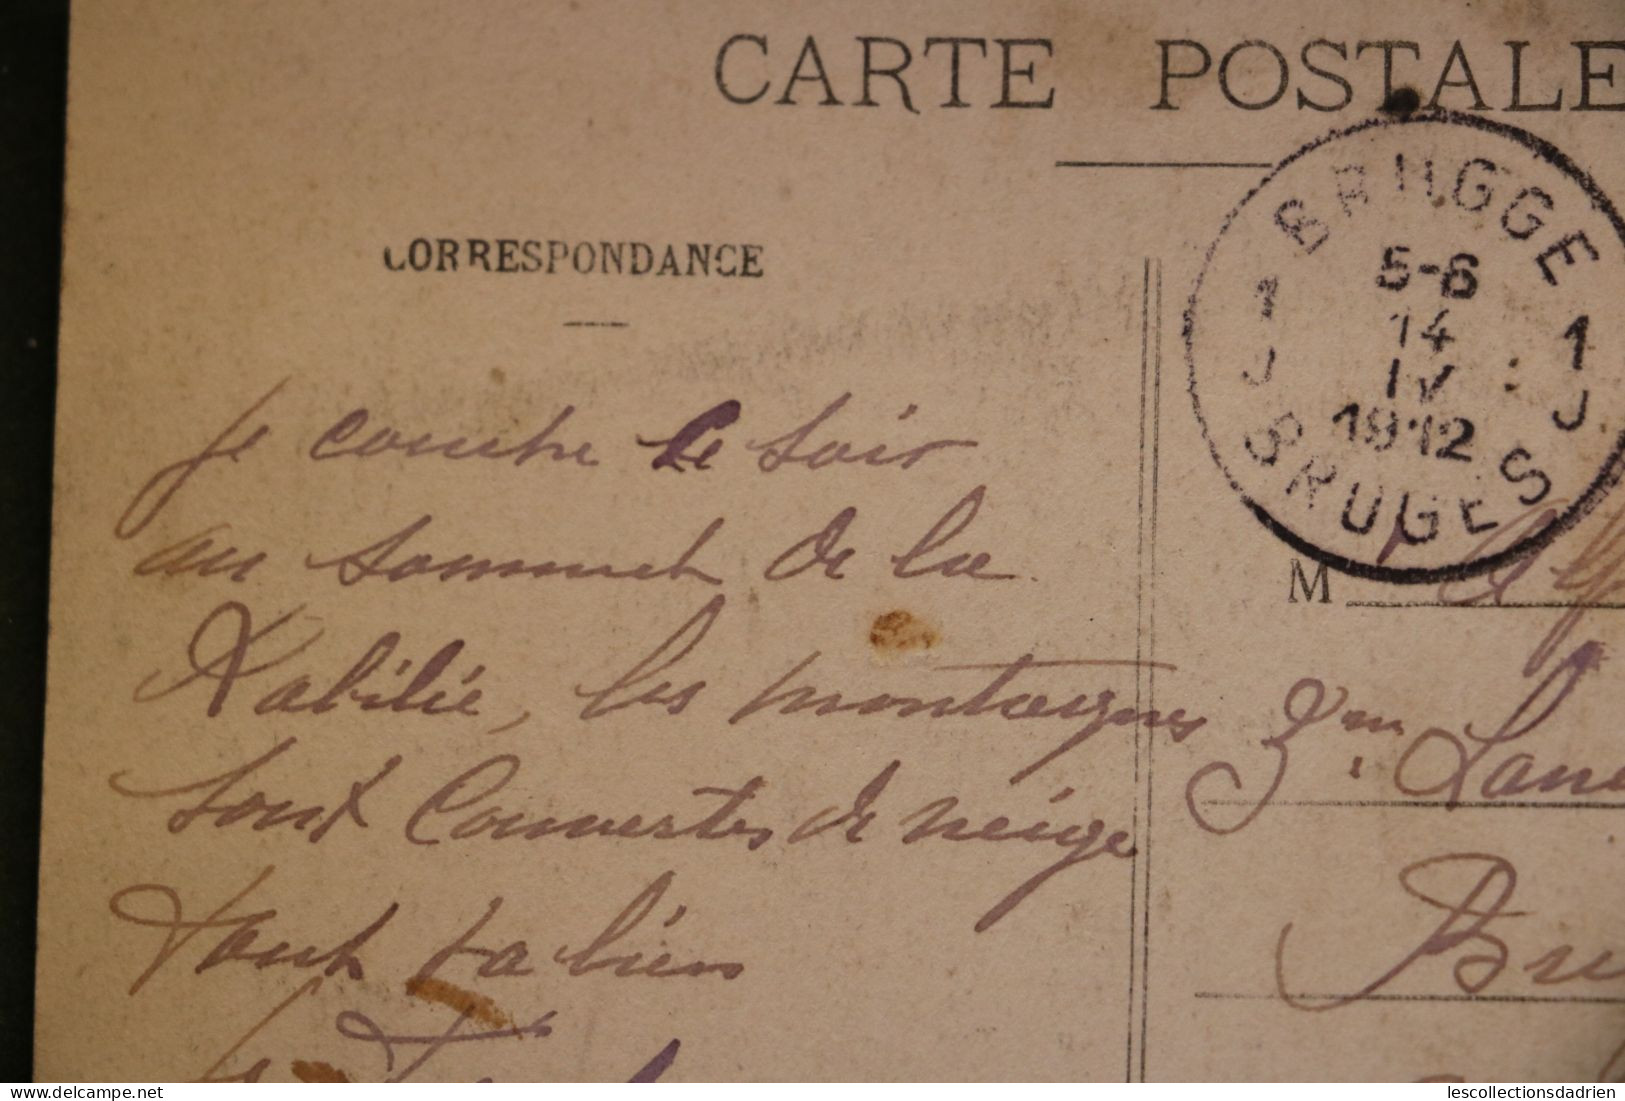 CARTE POSTALE
CORRESPONDANCE
BRUGGE
5-6
14
IV
1912
1 J
1 J
BRUGES
Je couche le soir
au sommet de la
Kabilie, les montagnes
sont Couvertes de neige
tout va bien
M
Bru
lescollectionsdadrien